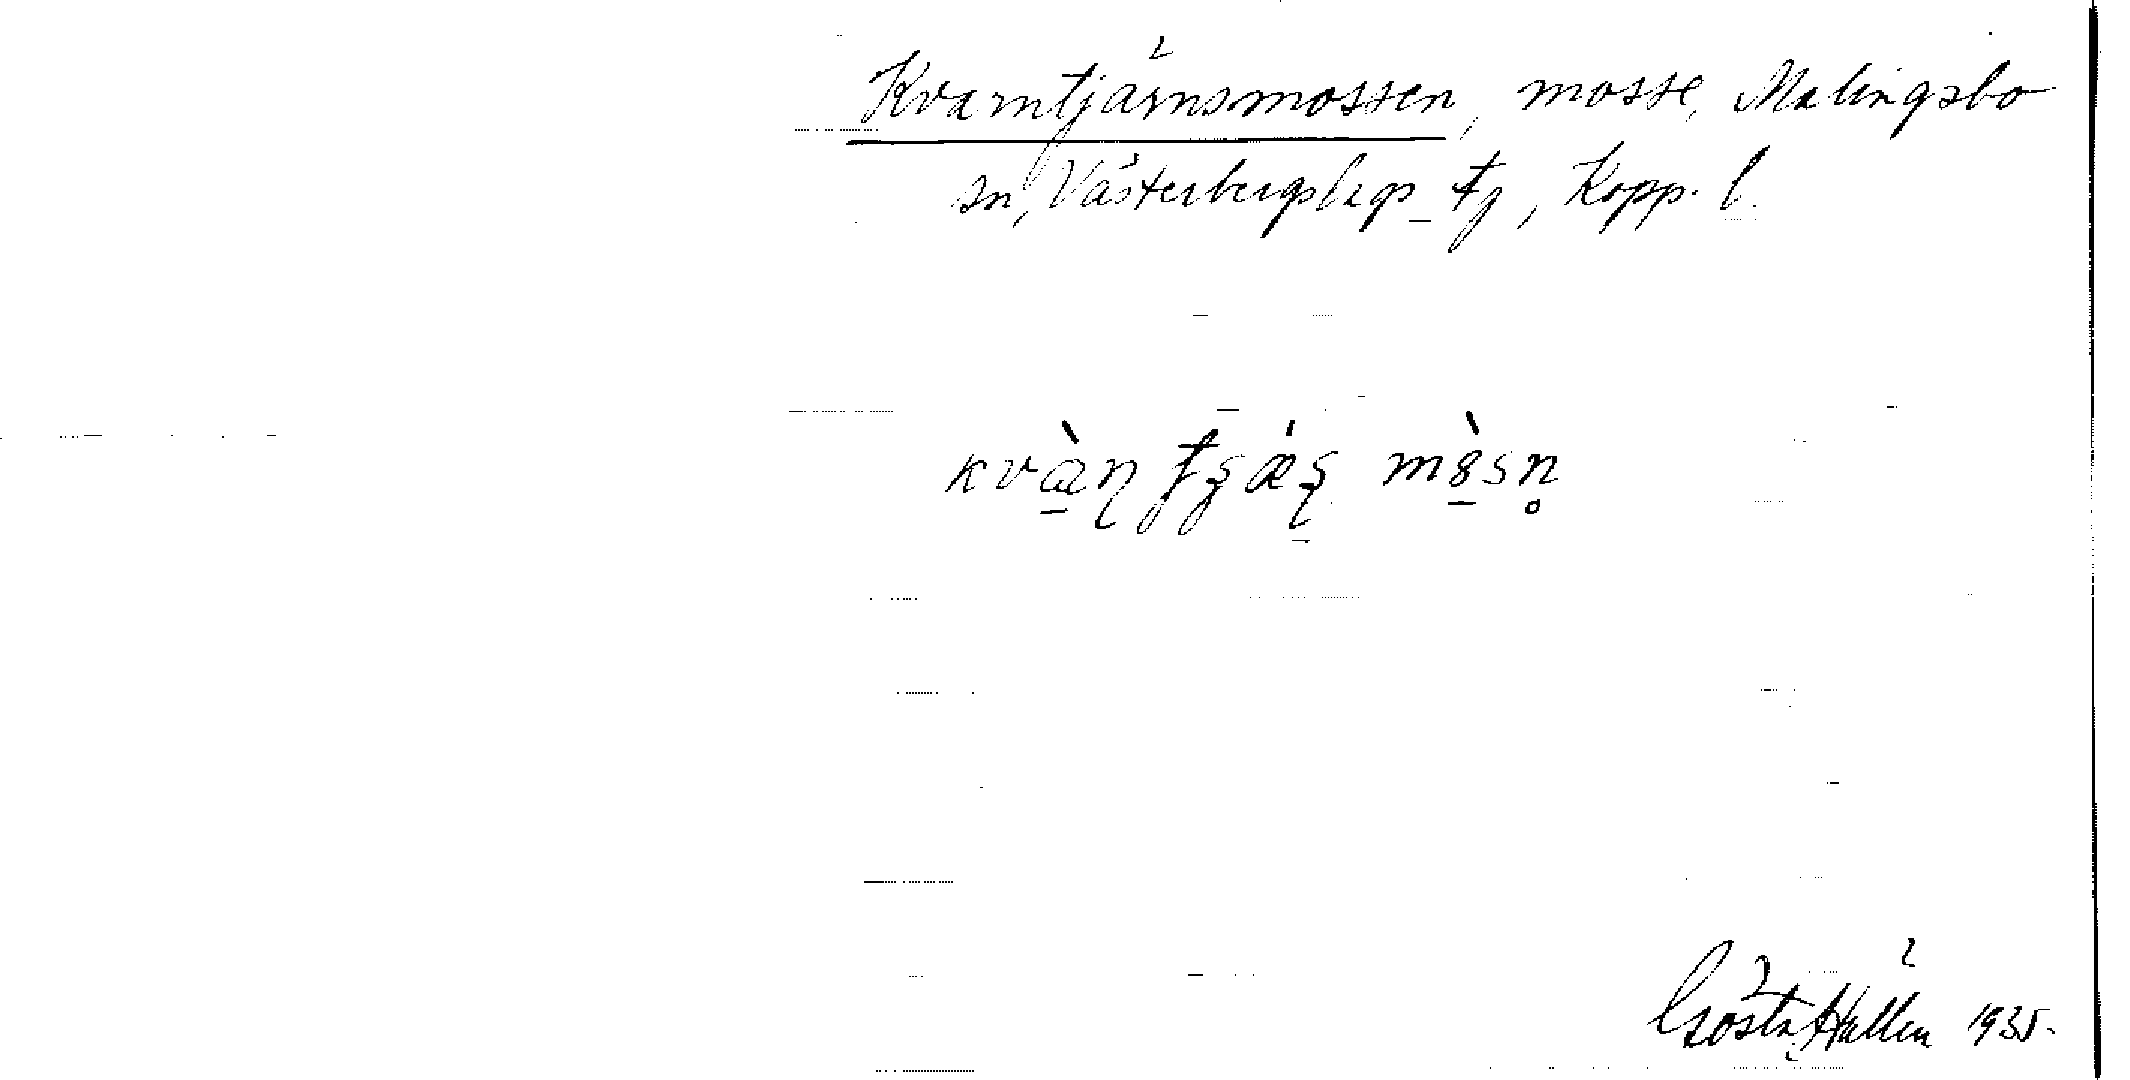 Kvarntjärnsmossen, mosse, Malingsbo
sn, Västerbergslags tg, Kopp. l.
Gösta Hallén 1935.